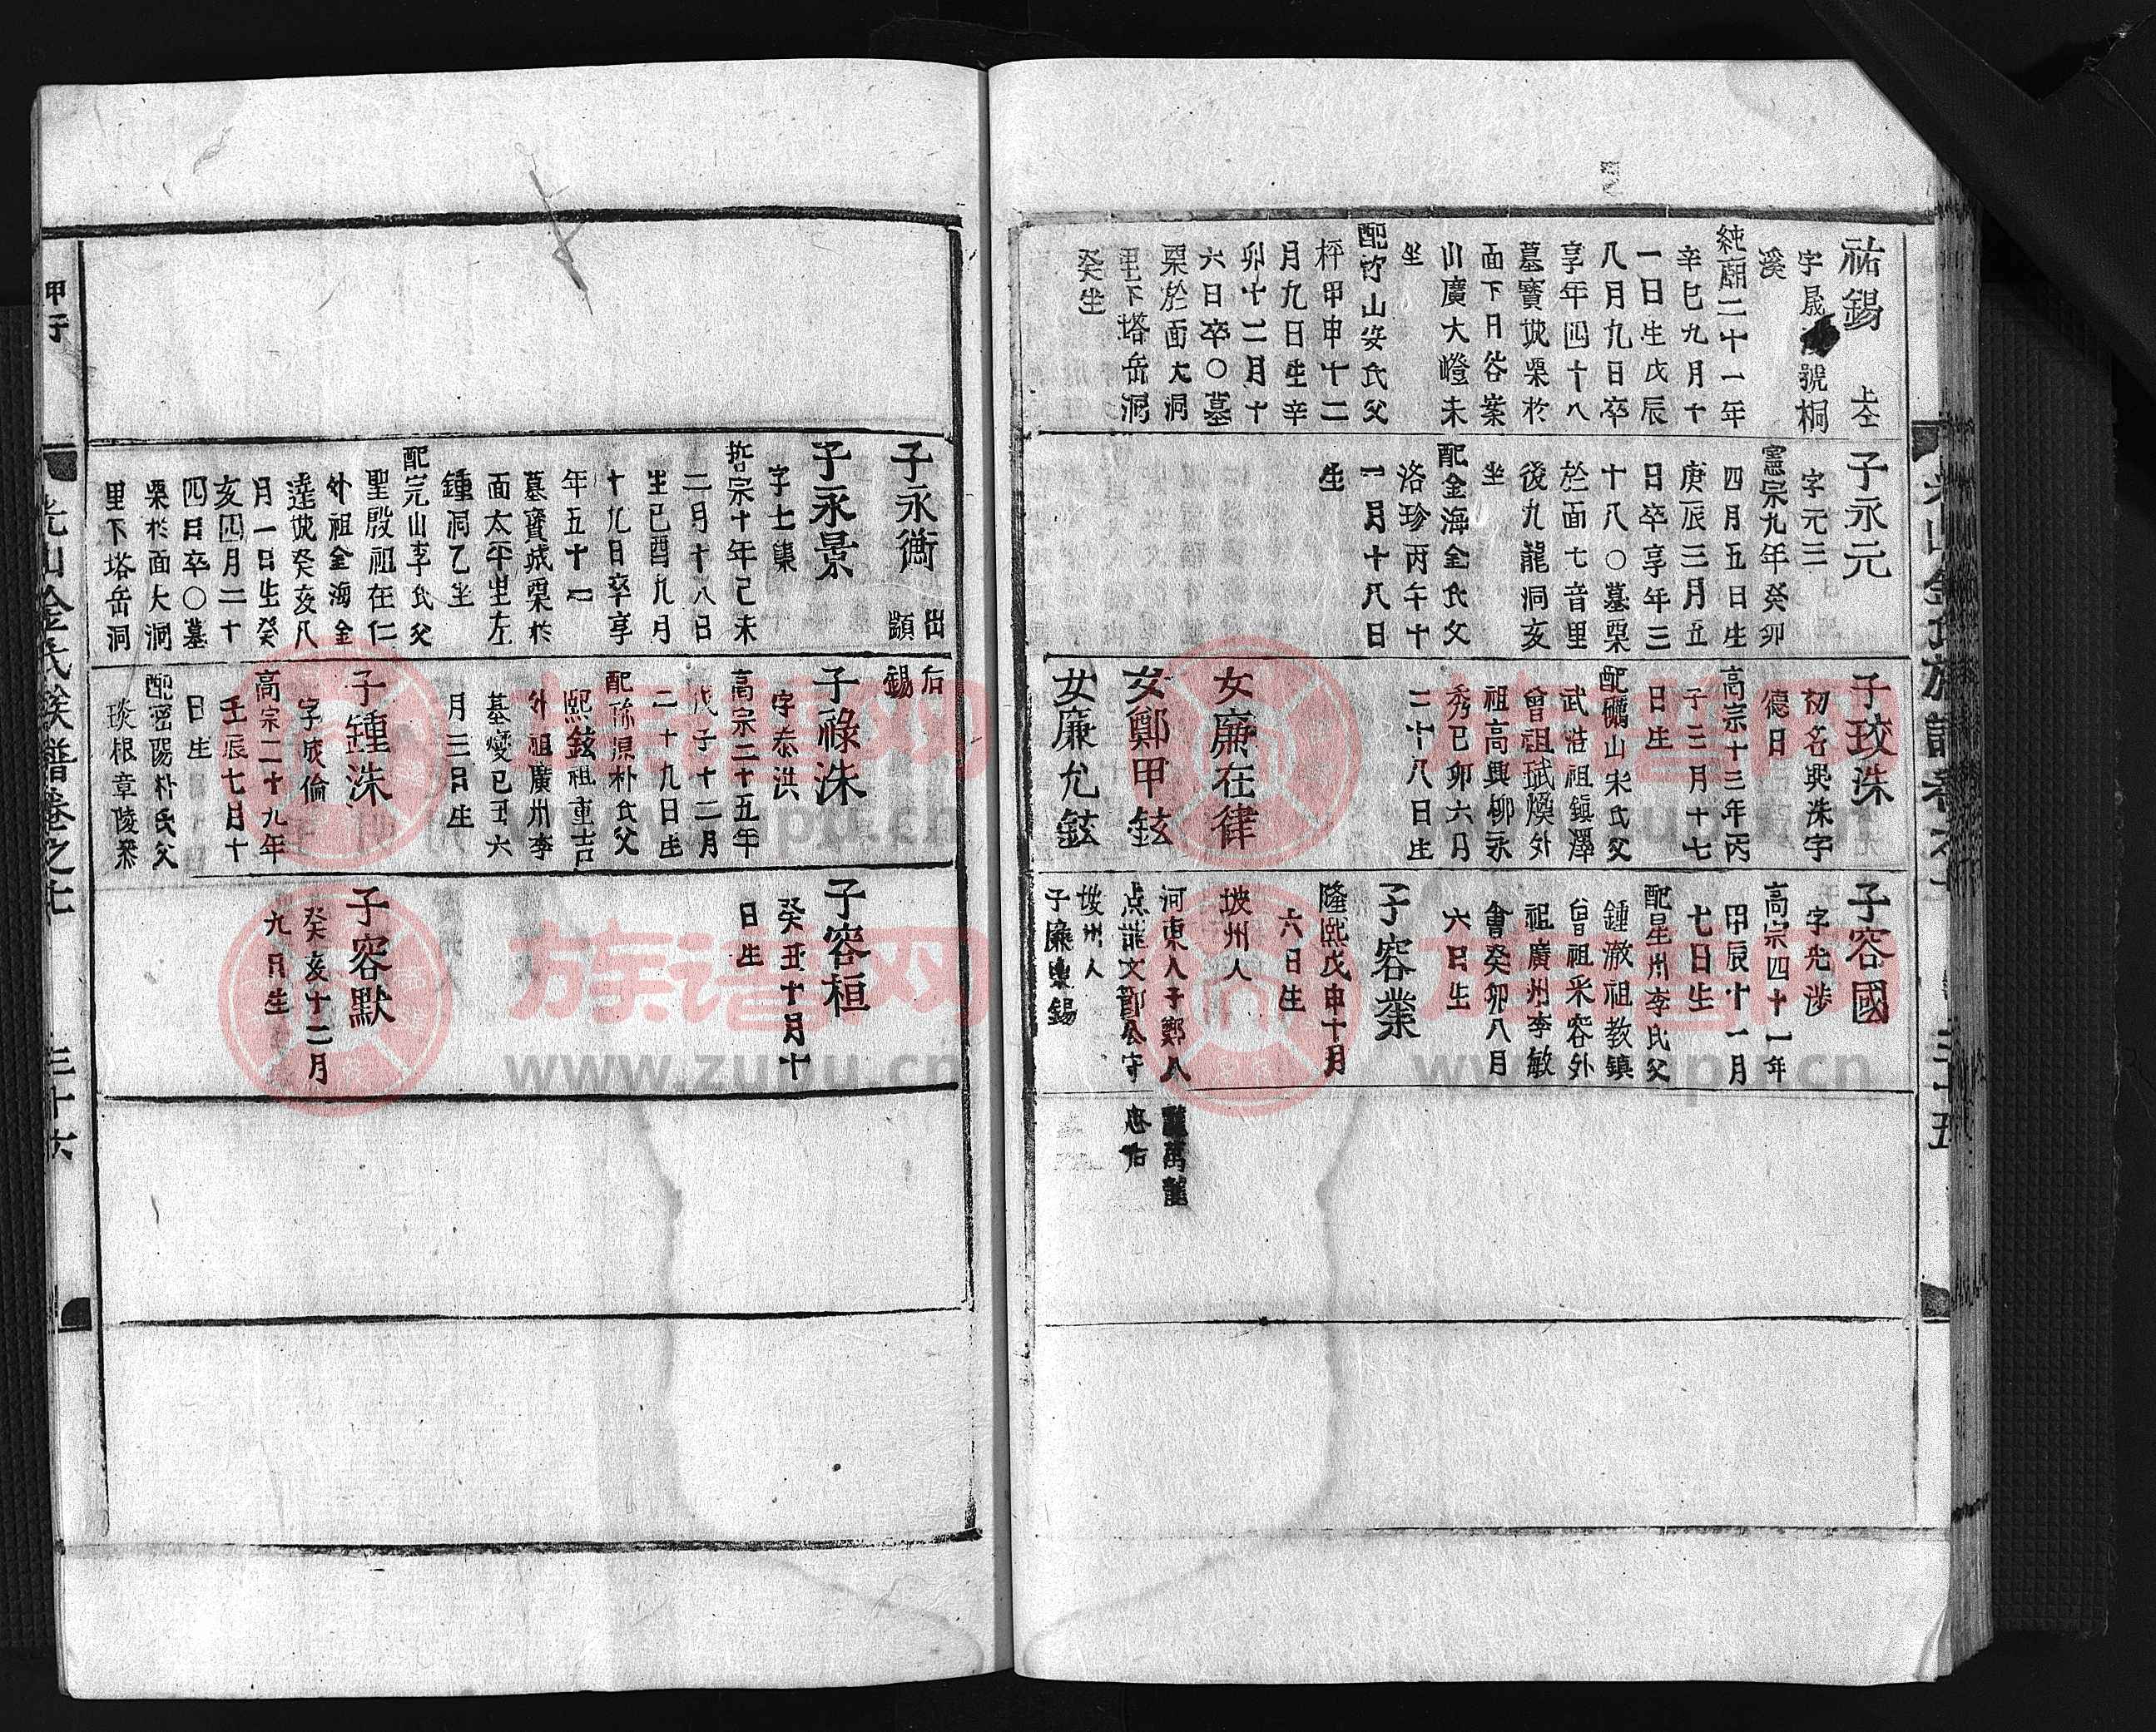 祐錫 上仝
溪
純廟二十一年
辛巳九月十
一日生戊辰
八月九日卒
享年四十八
墓寶城栗於
面下日谷案
山廣大嶝未
坐
配竹山安氏父
枰甲申十二
月九日生辛
卯十二月十
六日卒〇墓
栗於面大洞
里下塔岳洞
癸坐
子永元
字元三
憲宗九年癸卯
四月五日生
庚辰三月五
日卒享年三
十八〇墓栗
於面七音里
後九龍洞亥
坐
配金海金氏父
洛珍丙午十
一月十八日
生
子玟洙
初名興洙字
德日
高宗十三年丙
子三月十七
日生
配礪山宋氏父
武浩祖鎭澤
曾祖珷煥外
祖高興柳永
秀己卯六月
二十八日生
女廉在律
女鄭甲鉉
女廉允鉉
子容國
字光涉
高宗四十一年
甲辰十一月
七日生
配星州李氏父
鍾澈祖教鎭
曾祖釆容外
祖廣州李敏
會癸卯八月
六日生
子容業
隆熙戊申十月
六日生
坡州人
河東人子鄭八
龍萬龍
坡州人
子廉東錫
光山金氏族譜卷之十
三十五
子永衡 出
后
顗
錫
子永景
字士集
哲宗十年己未
二月十八日
生己酉九月
十九日卒享
年五十一
墓寶城栗於
面太平里左
鍾洞乙坐
配完山李氏父
聖殷祖在仁
外祖金海金
達城癸亥八
月一日生癸
亥四月二十
四日卒〇墓
栗於面大洞
里下塔岳洞
子祿洙
字泰洪
高宗二十五年
戊子十二月
二十九日生
熙鉉祖重吉
外祖廣州李
基燮己丑六
月三日生
子鍾洙
字成倫
高宗二十九年
壬辰七月十
日生
配密陽朴氏父
琰根章陵叅
子容桓
癸丑十月十
日生
子容默
癸亥十二月
九日生
光山金氏族譜卷之十
三十六
族谱网
www.zupu.cn
族谱网
www.zupu.cn
族谱网
www.zupu.cn
族谱网
www.zupu.cn